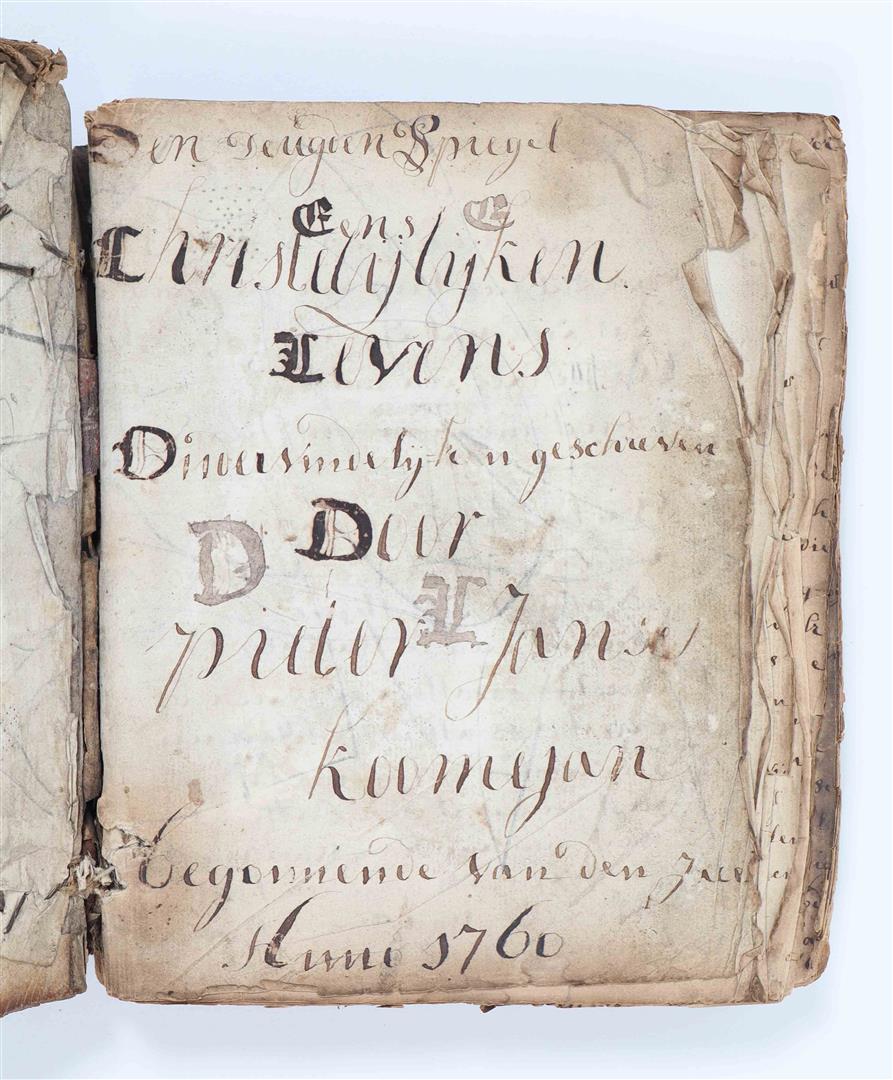 Den deugden Spiegel
Eens E
Christelijlijken
Levens
Ondervindelijk en geschreven
Door
D
pieter L Janses
koomejan
begonnende van den jaer
Anno 1760